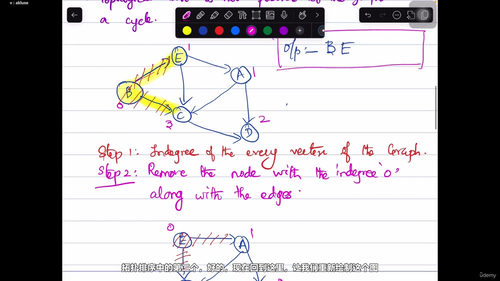 a cycle.
o/p :- B E
E
1
A
1
B
0
C
3
2
D
Step 1: Indegree of the every vertex of the Graph.
Step 2: Remove the node with the indegree '0',
along with the edges.
0
E
A
1
拓扑排序中的第二个。好的。现在回到这里，让我们重新绘制这个图
Udemy